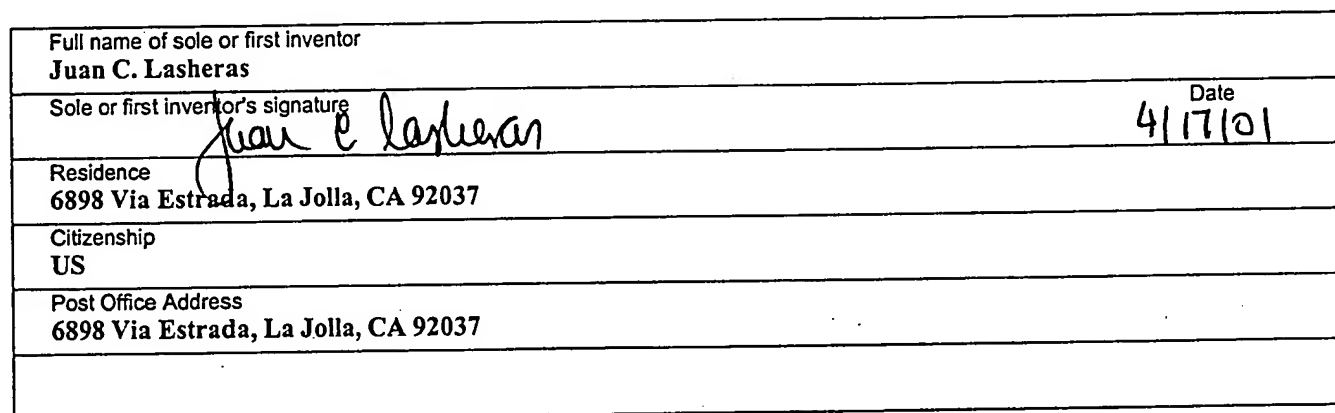 Full name of sole or first inventor
Juan C. Lasheras
Sole or first inventor's signature
Juan C Lasheras
Date
4/17/01
Residence
6898 Via Estrada, La Jolla, CA 92037
Citizenship
US
Post Office Address
6898 Via Estrada, La Jolla, CA 92037